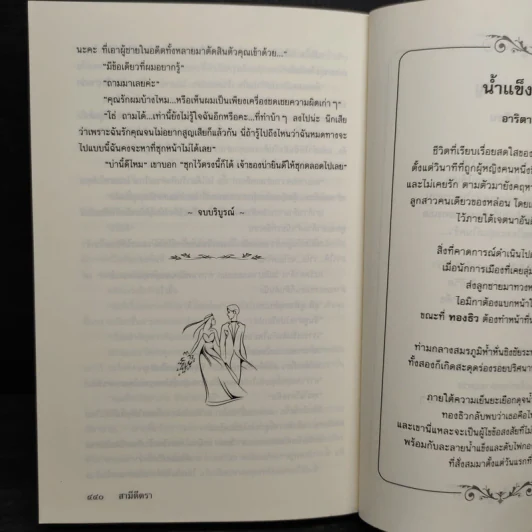 นะคะ ที่เอาผู้ชายในอดีตทั้งหลายมาตัดสินตัวคุณเข้าด้วย..."
"มีข้อเดียวที่ผมอยากรู้"
"ถามมาเลยค่ะ"
"คุณรักผมบ้างไหม...หรือเห็นผมเป็นเพียงเครื่องชดเชยความผิดเก่าๆ"
"โธ่ ถามได้...เท่านี้ยังไม่รู้ใจฉันอีกหรือคะ...ที่ทำบ้าๆ ลงไปน่ะ นึกเสีย
ว่าเพราะฉันรักคุณจนไม่อยากสูญเสียก็แล้วกัน นี่ถ้ารู้ไปถึงไหนว่าฉันหมดทางจะ
ไปแบบนี้ฉันคงจะหาที่ซุกหน้าไม่ได้เลย"
"บ่านี้ดีไหม" เขาบอก "ซุกไว้ตรงนี้ก็ได้ เจ้าของบ่ายินดีให้ซุกตลอดไปเลย"
– จบบริบูรณ์ –
๔๔๐ สามีตีตรา
น้ำแข็ง
อาริตา
ชีวิตที่เรียบเรื่อยสดใสของ
ตั้งแต่วินาทีที่ถูกผู้หญิงคนหนึ่ง
และไม่เคยรัก ตามตัวมายังคฤห
ลูกสาวคนเดียวของหล่อน โดย
ไว้ภายใต้เจตนาอัน
สิ่งที่คาดการณ์ดำเนินไป
เมื่อนักการเมืองที่เคย
ส่งลูกชายมาทวง
ไอมิกาต้องแบกหน้า
ขณะที่ ทองธิว ต้องทำหน้าที่
ท่ามกลางสมรภูมิห้ำหั่นชิงชัย
ทั้งสองก็เกิดสะดุดร่องรอยปริศนา
ภายใต้ความเย็นยะเยือกดุจน้ำ
ทองธิวกลับพบว่าเธอคือ
และเขานี่แหละจะเป็นผู้ไขข้อสงสัยที่
พร้อมกับละลายน้ำแข็งและดับไฟ
ที่สั่งสมมาตั้งแต่วันแรกที่